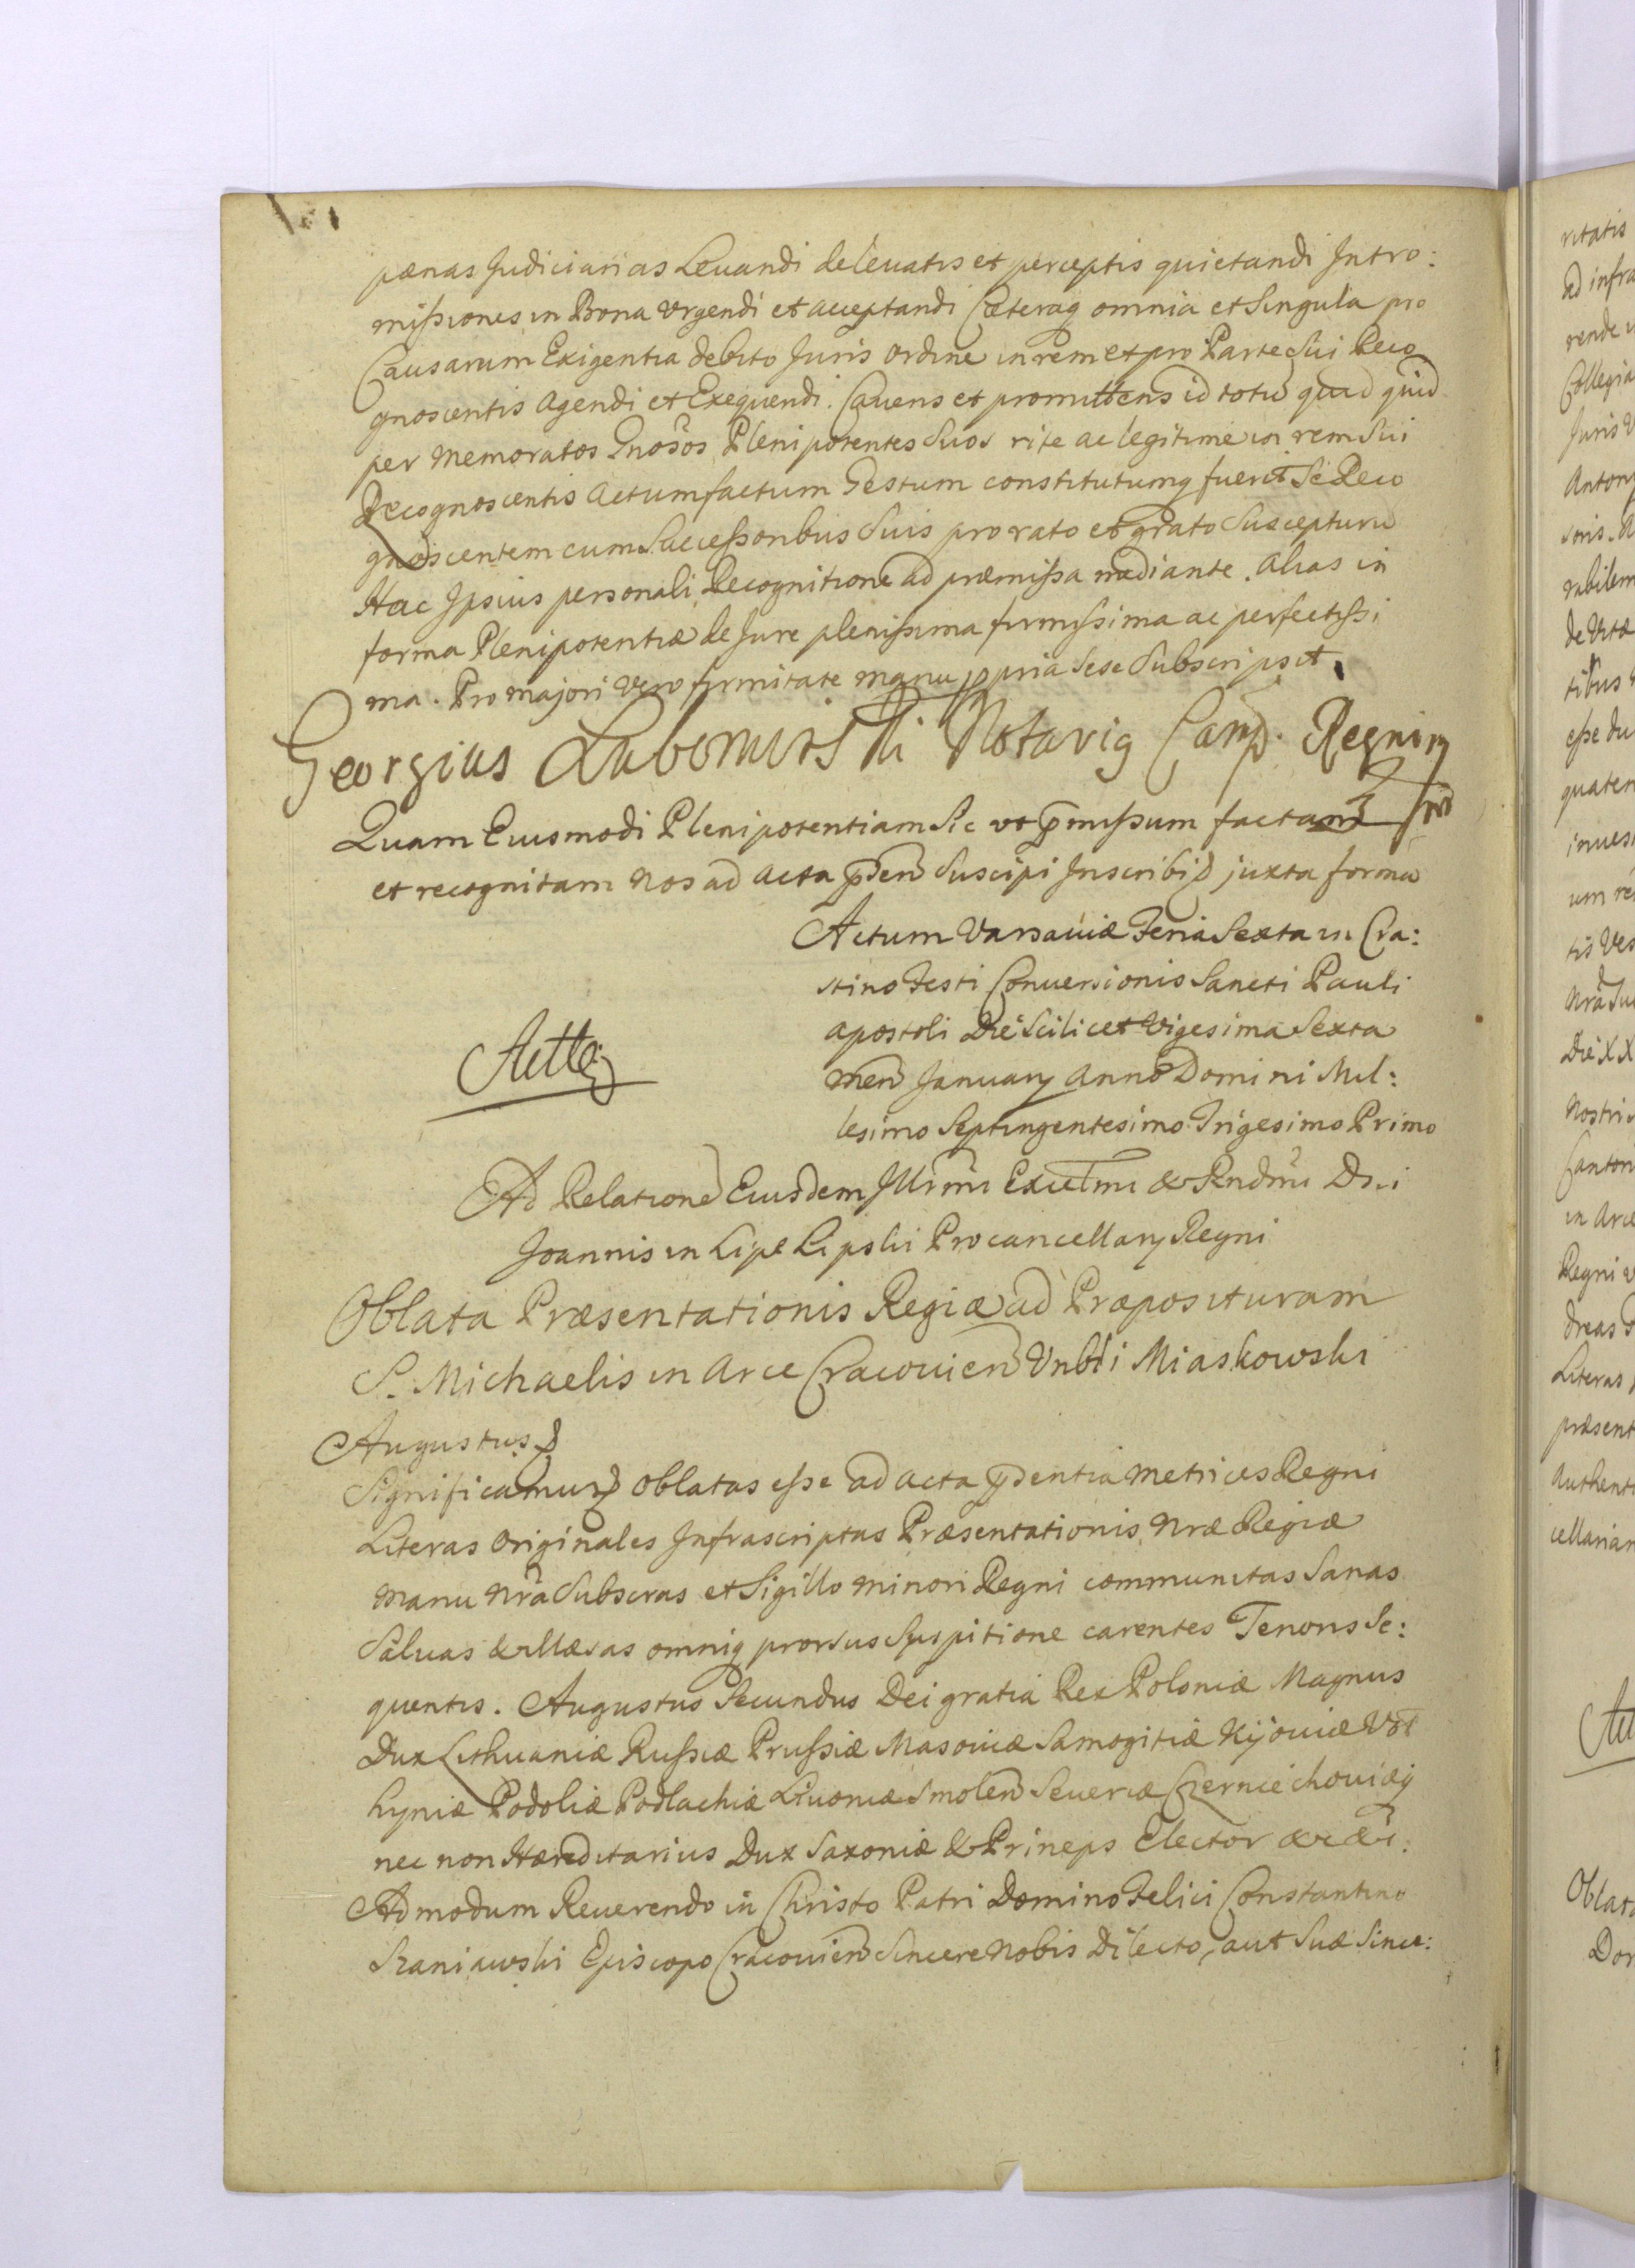 pænas Judiciarias Levandi de levatis et perceptis quietandi Intro:
missiones in Bona Urgendi et acceptandi Cæteraq omnia et Singula pro
Causarum Exigentia debito Juris ordine in rem et pro Parte Sui Reco
gnoscentis agendi et Exequendi. Cavens et promittens id totu quid quid
per memoratos Gnosos Plenipotentes Suos rite ac legitime in rem Sui
Recognoscentis actum factum Gestum constitutumq fuerit Se Reco
gnoscentem cum Successoribus Suis pro rato et grato Suscepturu
Hac Ipsius personali Recognitione ad præmissa mediante. alias in
forma Plenipotentiæ de Jure plenissima firmissima ac perfectissi
ma. Pro majori vero firmitate manu ppria Sese Subscripsit.
Georgius Lubomirski Notariq Camp. Regni
Quam Eiusmodi Plenipotentiam Sic ut pmissum factam
et recognitam nos ad acta pden Suscipi Inscribi juxta forma
Actum Varsaviæ Feria Sexta in Cra:
stino Festi Conversionis Sancti Pauli
apostoli Die Scilicet Vigesima Sexta
men January Anno Domini Mil:
lesimo Septingentesimo Trigesimo Primo
Ad Relatione Eiusdem Illrmi Excelmi & Rndmi Dni
Joannis in Lipe Lipski Procancellary Regni
Oblata Præsentationis Regiæ ad Præposituram
S. Michaelis in Arce Cracovien Vnbli Miaskowski
Augustus
Significamus oblatas esse ad acta pdentia metrices Regni
Literas originales Infrascriptas Præsentationis nræ Regiæ
manu nra Subscras et Sigillo minori Regni communitas Sanas
Salvas & illæsas omniq prorsus Suspitione carentes Tenoris Se:
quentis. Augustus Secundus Dei gratia Rex Poloniæ Magnus
Dux Lithuaniæ Russiæ Prussiæ Masoviæ Samogitiæ Kijoviæ Vol
hyniæ Podoliæ Podlachiæ Livoniæ Smolen Severiæ Czerniechoviæq
nec non Hæreditarius Dux Saxoniæ & Prineps Elector &c &c.
Admodum Reverendo in Christo Patri Domino Felici Constantino
Szaniawski Episcopo Cracovien Sincere nobis Dilecto, aut Suæ Since: